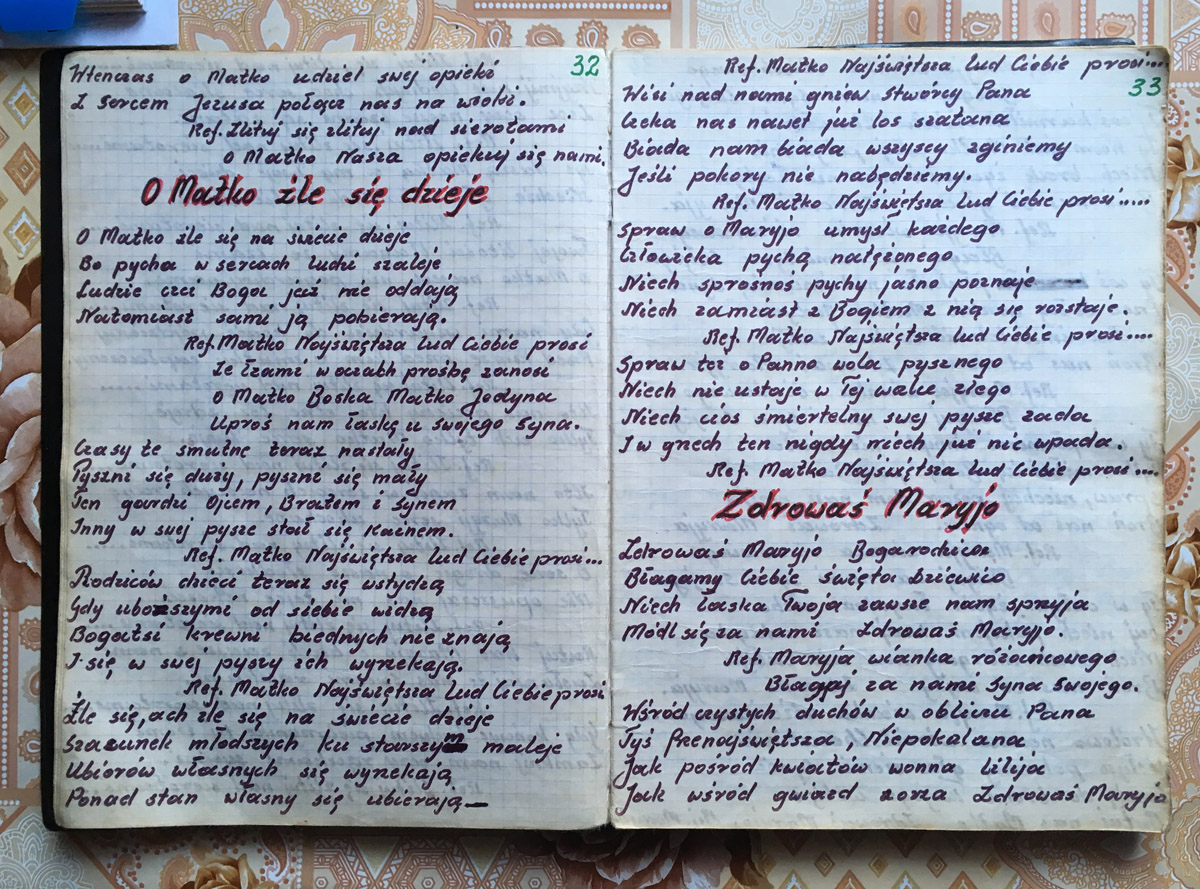 32
Wtenczas o Matko udziel swej opieki
I sercem Jezusa połącz nas na wieki.
Ref. Zlituj się zlituj nad sierotami
O Matko Nasza opiekuj się nami.
O Matko źle się dzieje
O Matko źle się na świecie dzieje
Bo pycha w sercach ludzi szaleje
Ludzie czci Boga już nie oddają
Natomiast sami ją pobierają.
Ref. Matko Najświętsza lud Ciebie prosi
Ze łzami w oczach prośbę zanosi
O Matko Boska Matko Jedyna
Uproś nam łaskę u swojego Syna.
Czasy te smutne teraz nastały
Pyszni się duży, pyszni się mały
Ten gardzi Ojcem, Bratem i Synem
Inny w swej pysze stał się Kainem.
Ref. Matko Najświętsza lud Ciebie prosi...
Rodziców dzieci teraz się wstydzą
Gdy uboższymi od siebie widzą
Bogatsi krewni biednych nie znają
I się w swej pyszy ich wyrzekają.
Ref. Matko Najświętsza lud Ciebie prosi
Źle się, ach źle się na świecie dzieje
Szacunek młodszych ku starszym maleje
Ubiorów własnych się wyrzekają
Ponad stan własny się ubierają
33
Ref. Matko Najświętsza lud Ciebie prosi....
Wisi nad nami gniew Stwórcy Pana
Czeka nas nawet już los szatana
Biada nam biada wszyscy zginiemy
Jeśli pokory nie nabędziemy.
Ref. Matko Najświętsza lud Ciebie prosi.....
Spraw o Maryjo umysł każdego
Człowieka pychą natężonego
Niech sprosnoś pychy jasno poznaje
Niech zamiast z Bogiem z nią się rozstaje.
Ref. Matko Najświętsza lud Ciebie prosi....
Spraw też o Panno wola pysznego
Niech nie ustaje w Tej walce złego
Niech cios śmiertelny swej pysze zada
I w grzech ten nigdy niech już nie wpada.
Ref. Matko Najświętsza lud Ciebie prosi....
Zdrowaś Maryjo
Zdrowaś Maryjo Bogarodzico
Błagamy Ciebie święta Dziewico
Niech łaska Twoja zawsze nam sprzyja
Módl się za nami Zdrowaś Maryjo.
Ref. Maryja wianka różańcowego
Błagaj za nami Syna Swojego.
Wśród czystych duchów w obliczu Pana
Tyś Przenajświętsza, Niepokalana
Jak pośród kwiatów wonna lilija
Jak wśród gwiazd zorza Zdrowaś Maryja